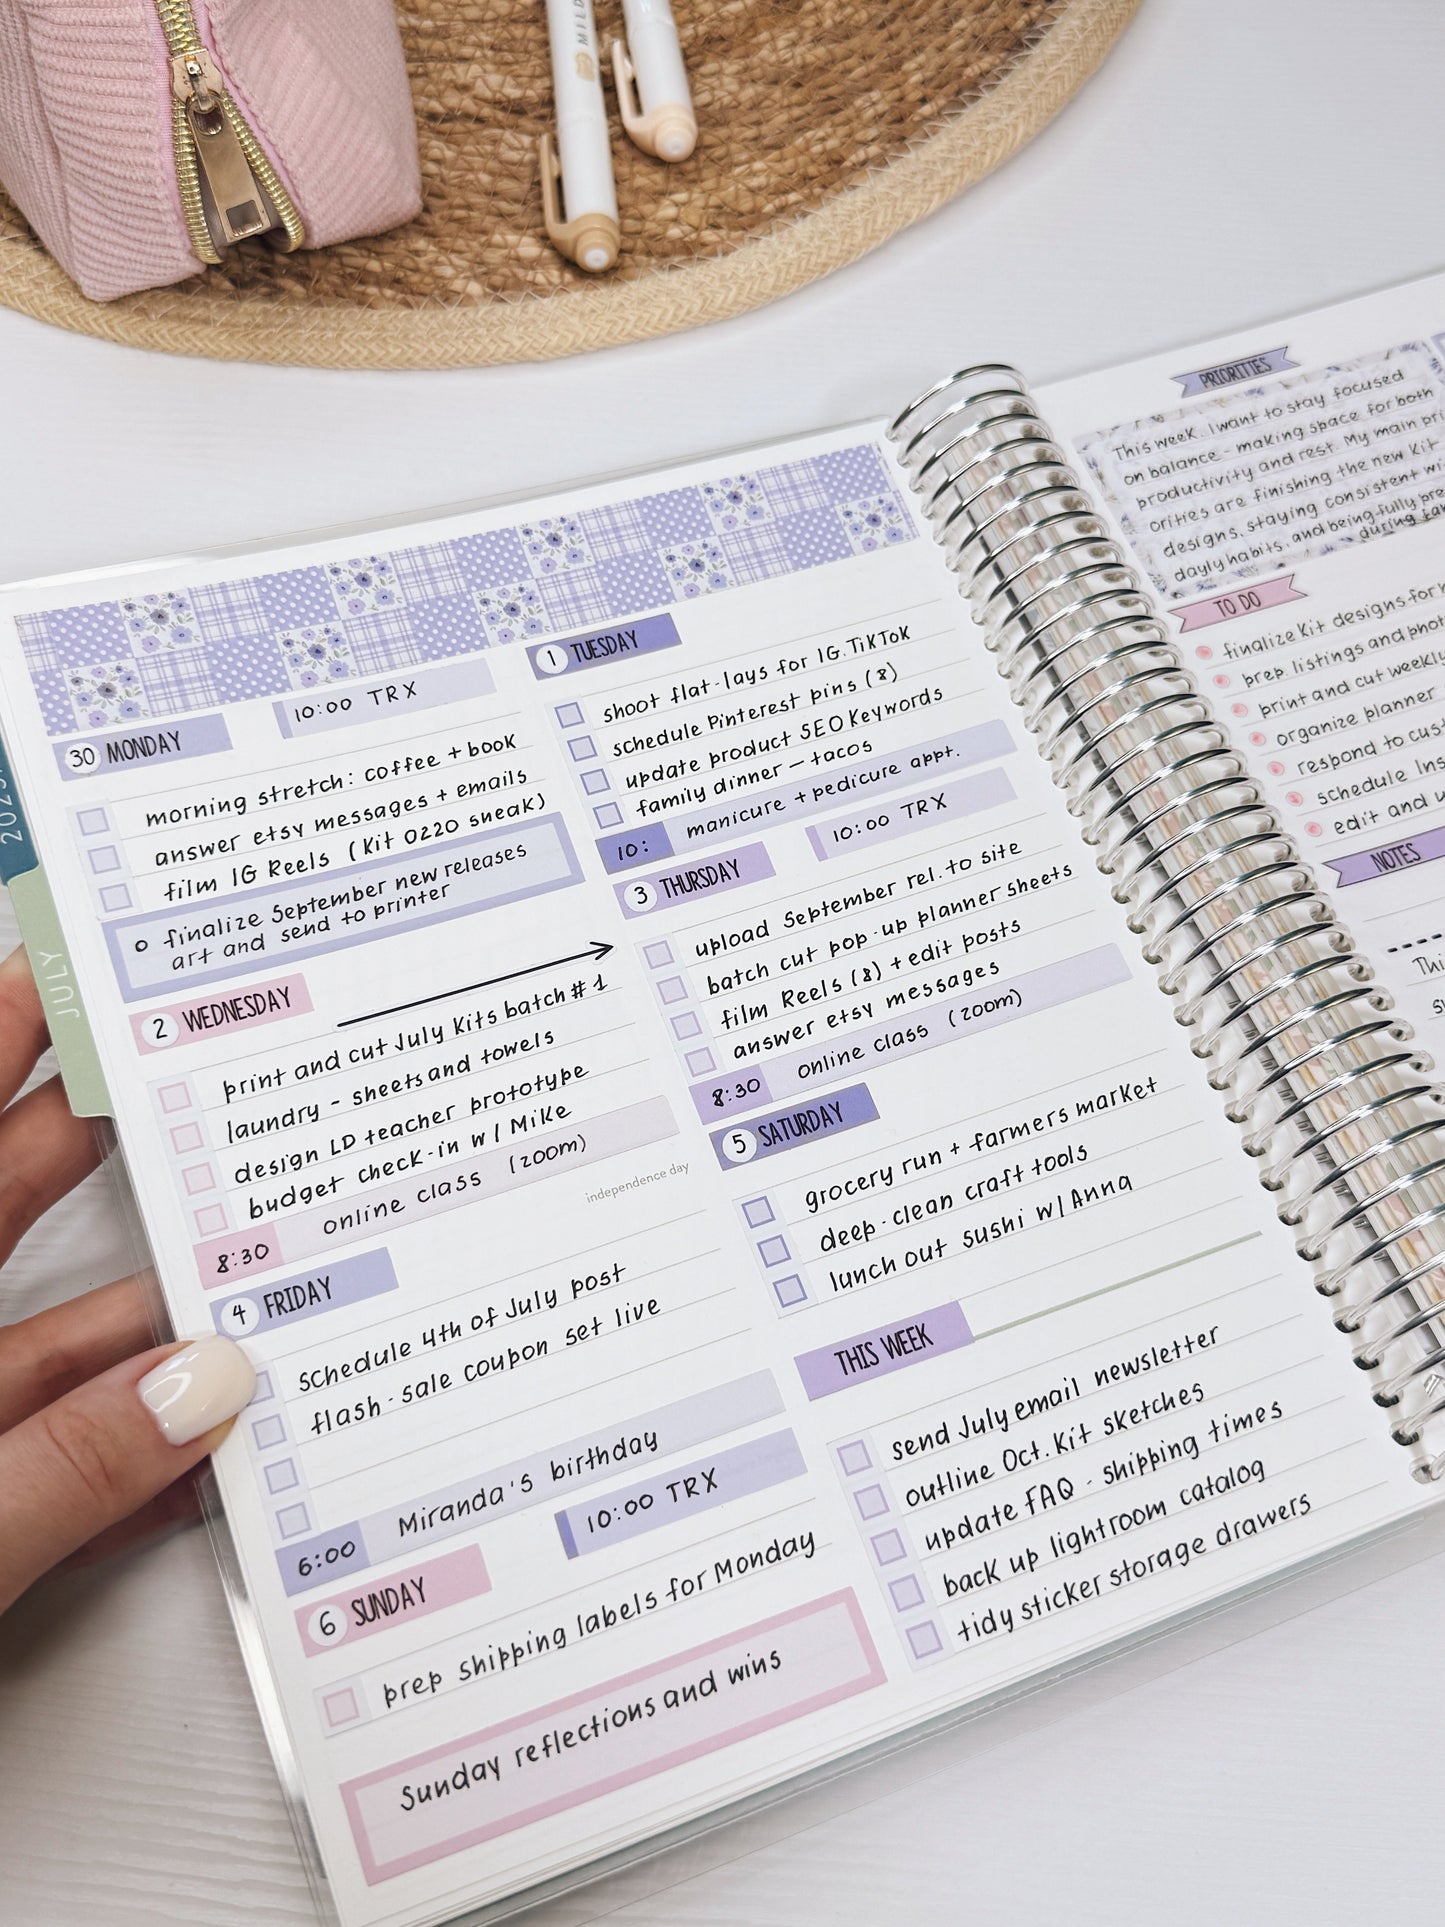 MILD
2025
JULY
10:00 TRX
30 MONDAY
morning stretch: coffee + book
answer etsy messages + emails
film IG Reels (Kit 0220 sneak)
o finalize September new releases
art and send to printer
1 TUESDAY
shoot flat-lays for IG.TikTok
schedule Pinterest pins (8)
update product SEO Keywords
family dinner - tacos
10: manicure + pedicure appt.
2 WEDNESDAY
print and cut July Kits batch #1
laundry - sheets and towels
design LD teacher prototype
budget check-in w/ Mike
8:30 online class (zoom)
10:00 TRX
3 THURSDAY
upload September rel. to site
batch cut pop-up planner sheets
film Reels (8) + edit posts
answer etsy messages
8:30 online class (zoom)
independence day
4 FRIDAY
schedule 4th of July post
flash-sale coupon set live
6:00 Miranda's birthday
5 SATURDAY
grocery run + farmers market
deep-clean craft tools
lunch out sushi w/ Anna
10:00 TRX
6 SUNDAY
prep shipping labels for Monday
Sunday reflections and wins
THIS WEEK
send July email newsletter
outline Oct. Kit sketches
update FAQ - shipping times
back up lightroom catalog
tidy sticker storage drawers
PRIORITIES
This week, I want to stay focused
on balance - making space for both
productivity and rest. My main pri
orities are finishing the new Kit
designs, staying consistent wi
dayly habits, and being fully pre
during
TO DO
finalize Kit designs for
prep listings and phot
print and cut weekly
organize planner
respond to cust
schedule Ins
edit and u
NOTES
Thi